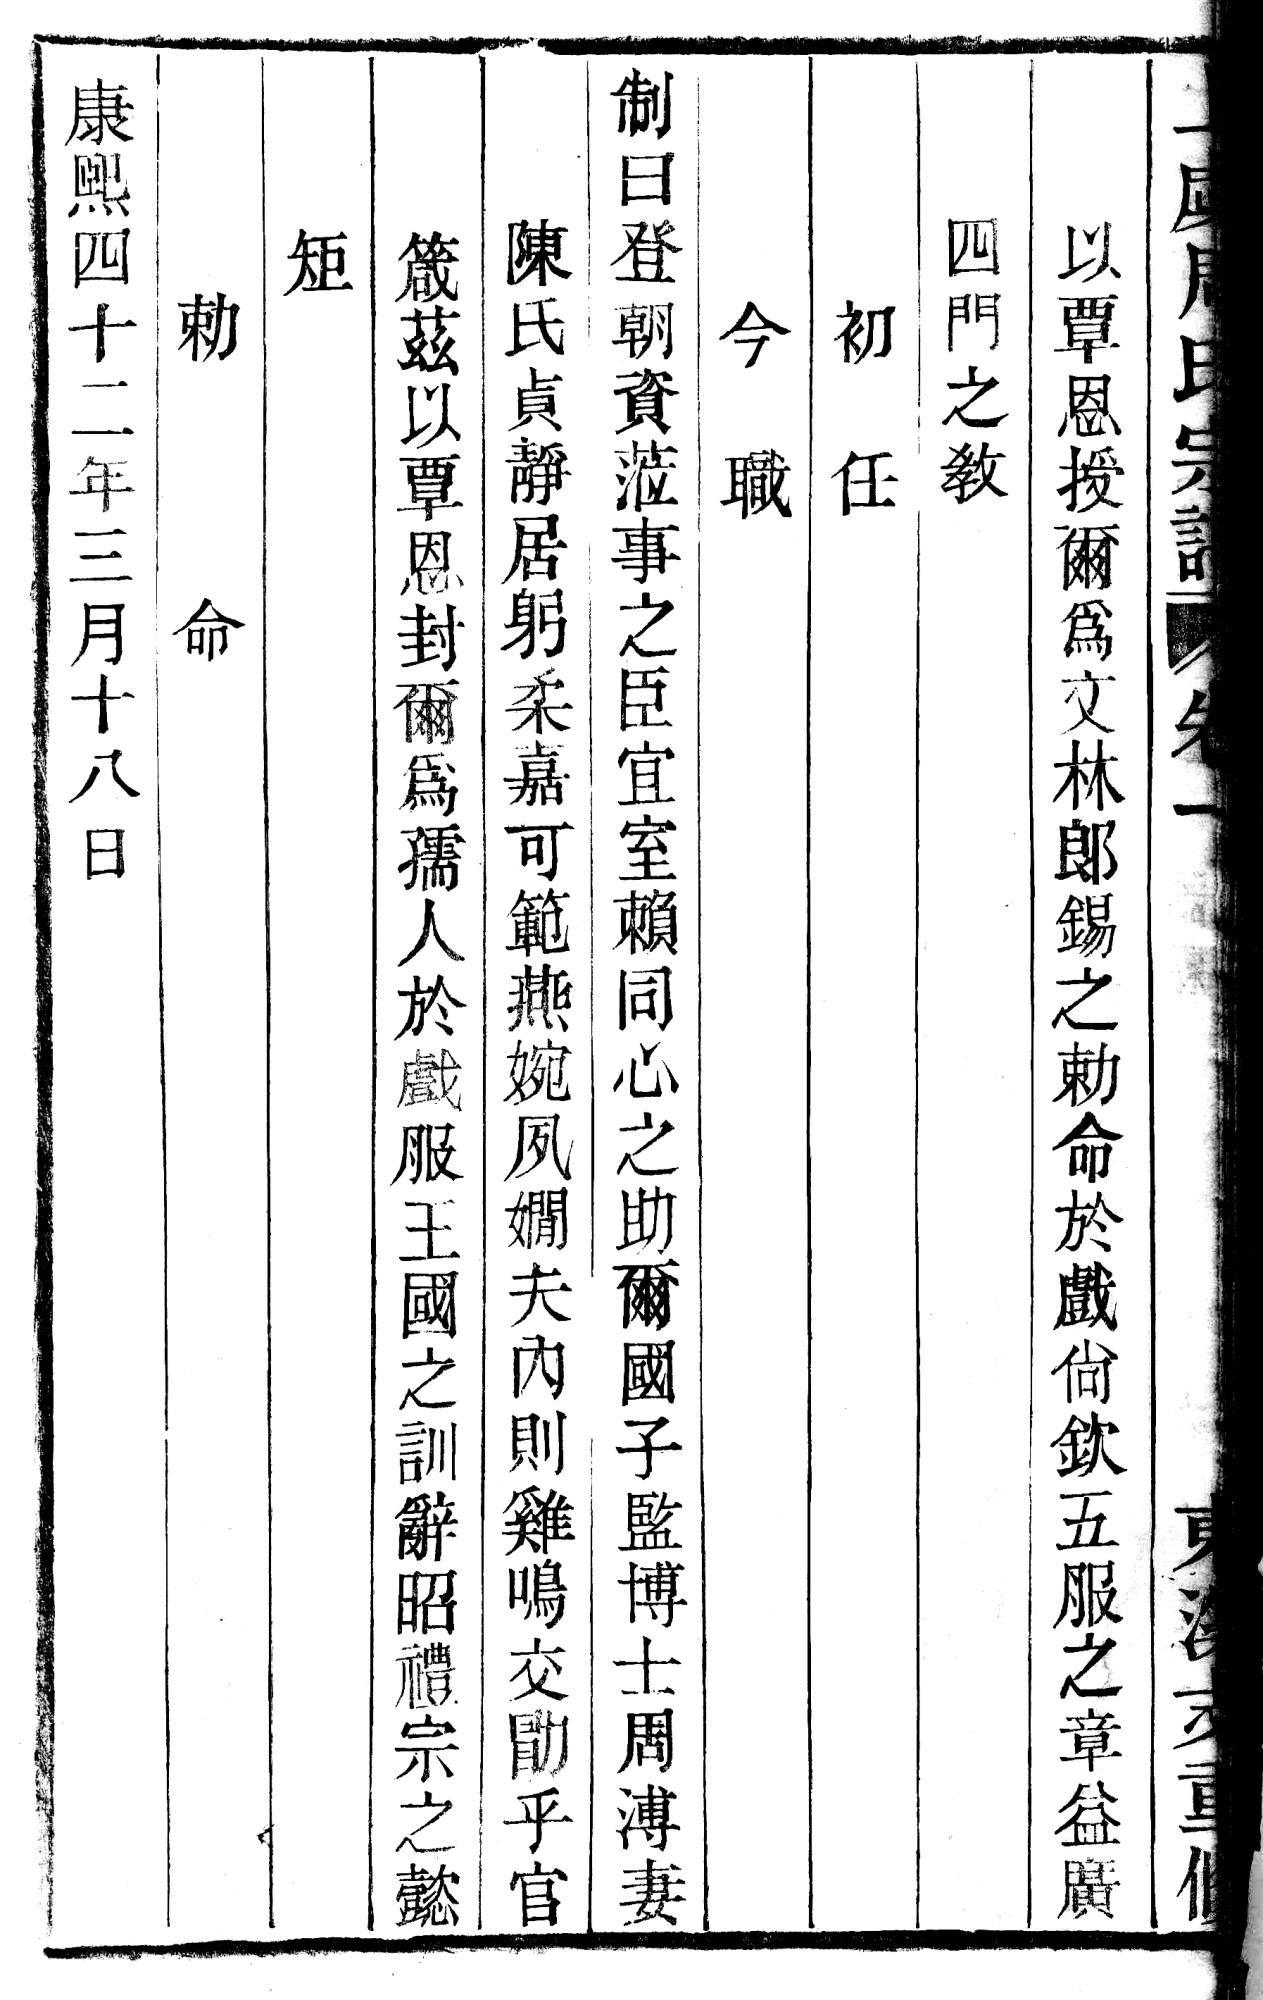 周氏宗譜 卷一
以覃恩授爾爲文林郎錫之勅命於戲尙欽五服之章益廣
四門之敎
初任
今職
制曰登朝資蒞事之臣宜室賴同心之助爾國子監博士周溥妻
陳氏貞靜居躬柔嘉可範燕婉夙嫺夫內則雞鳴交勖乎官
箴茲以覃恩封爾爲孺人於戲服王國之訓辭昭禮宗之懿
矩
勅命
康熙四十二年三月十八日